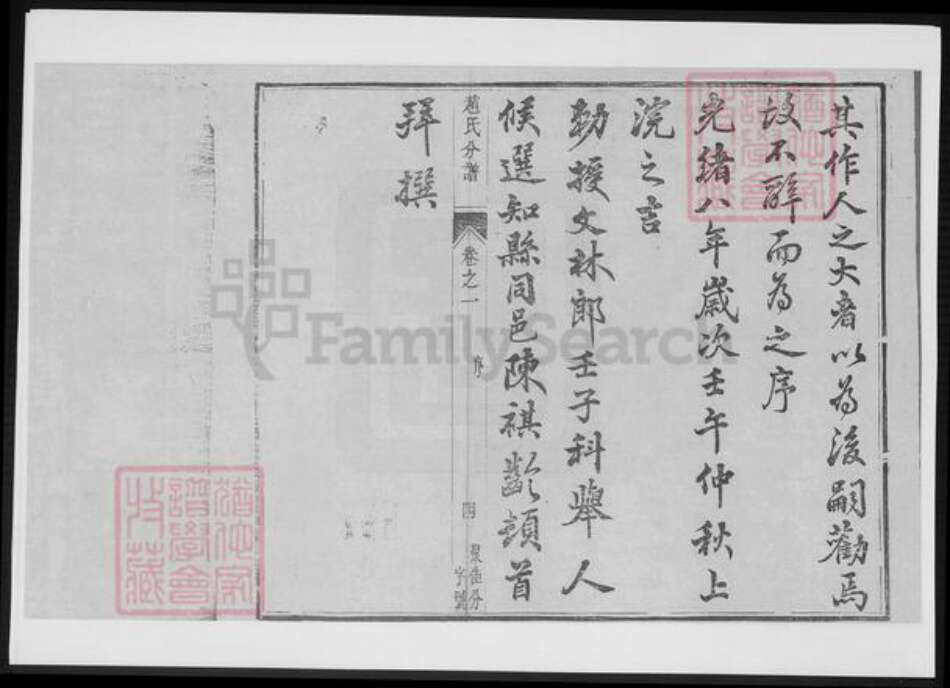 其作人之大者以為後嗣勸焉
故不辭而為之序
光緒八年歲次壬午仲秋上
浣之吉
勅授文林郎壬子科舉人
候選知縣同邑陳祺齡頓首
拜撰
趙氏分譜
卷之一
序
四
FamilySearch
譜學會
收藏